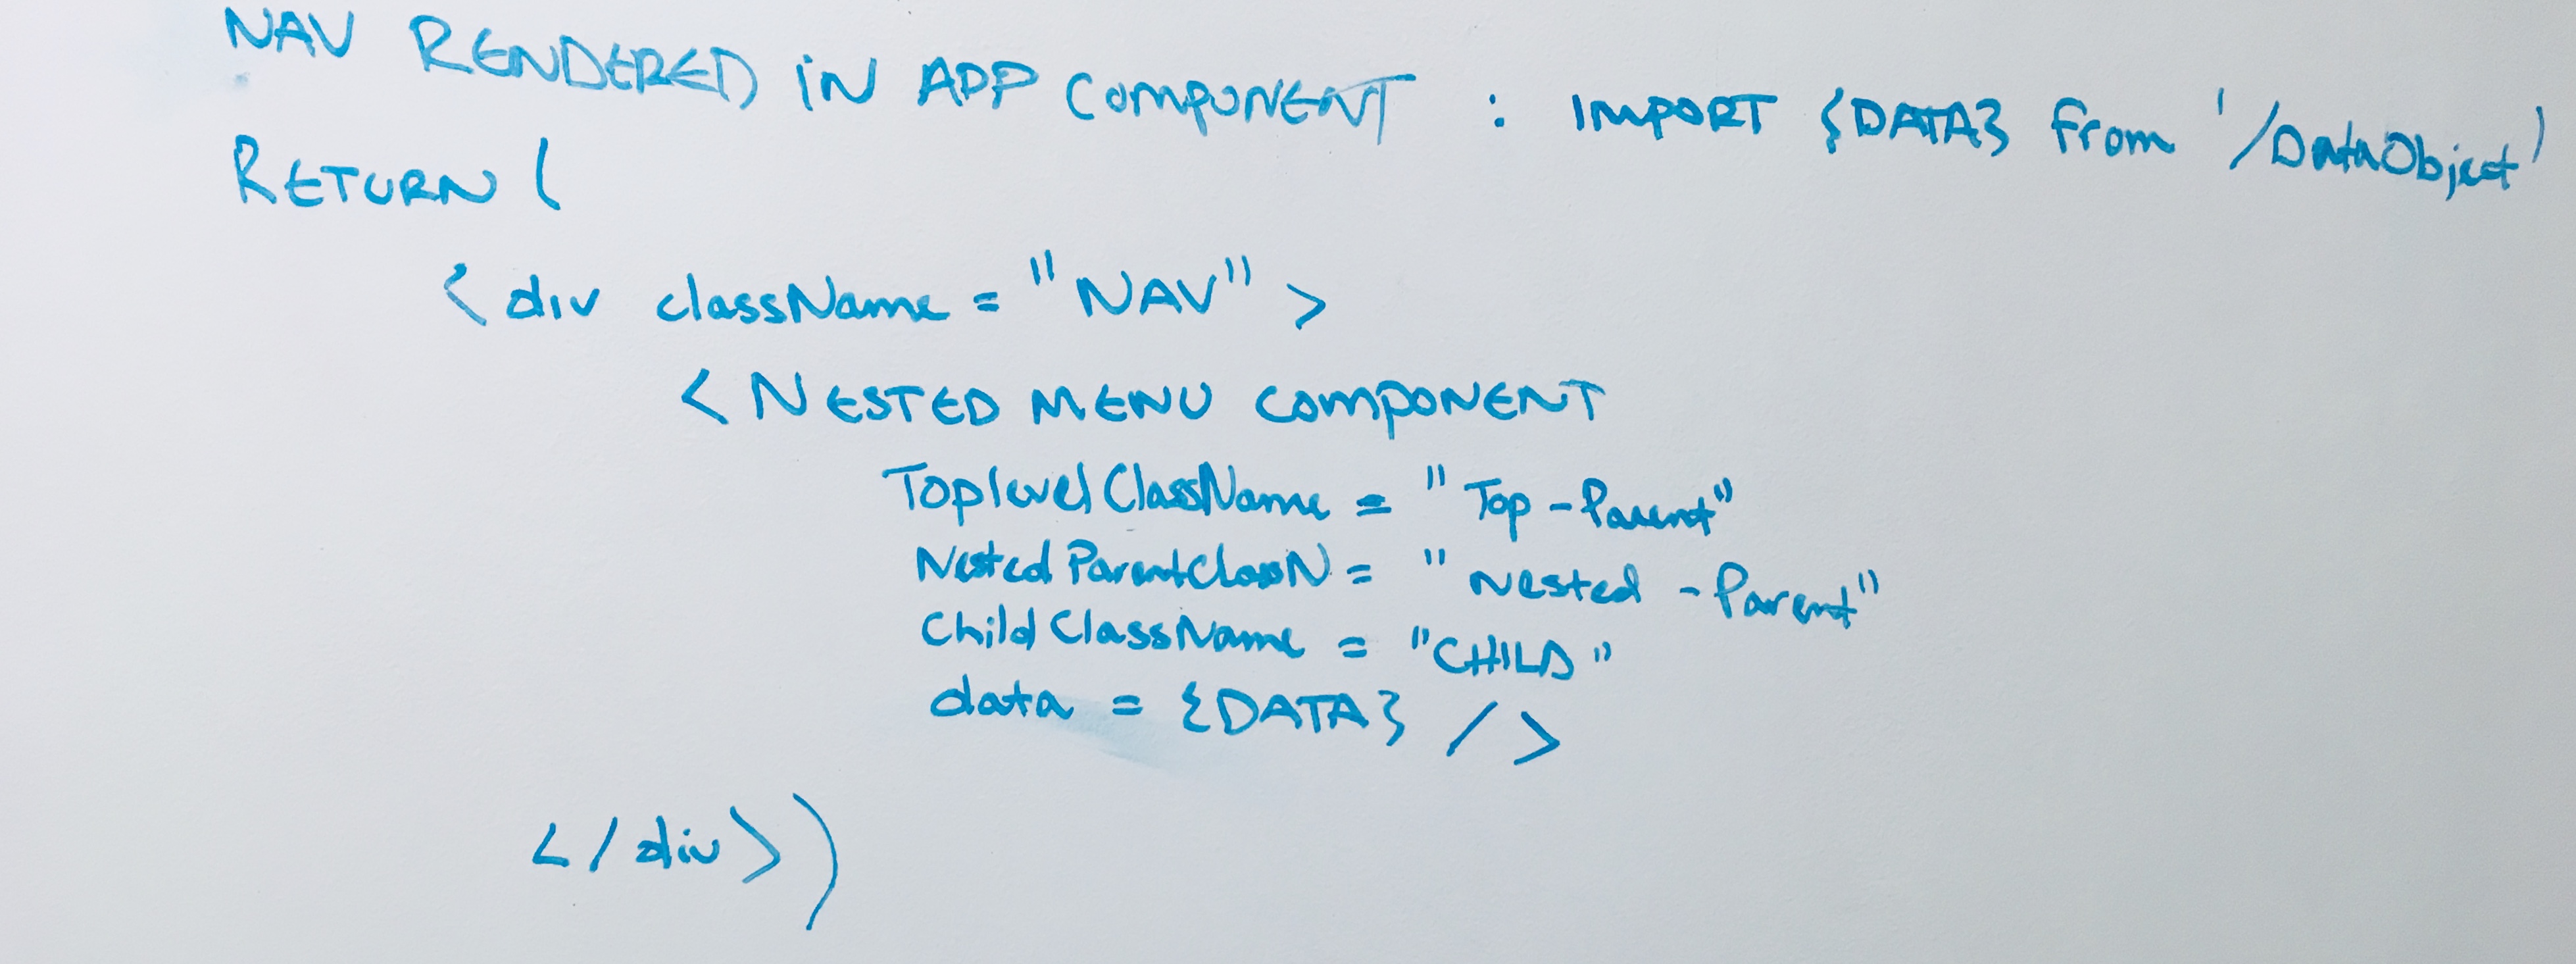 NAV RENDERED IN APP COMPONENT : IMPORT {DATA} from '/DataObject'
RETURN (
<div className = "NAV" >
< NESTED MENU COMPONENT
ToplevelClassName = "Top-Parent"
NestedParentClassN = "Nested-Parent"
ChildClassName = "CHILD"
data = {DATA} />
</div>)